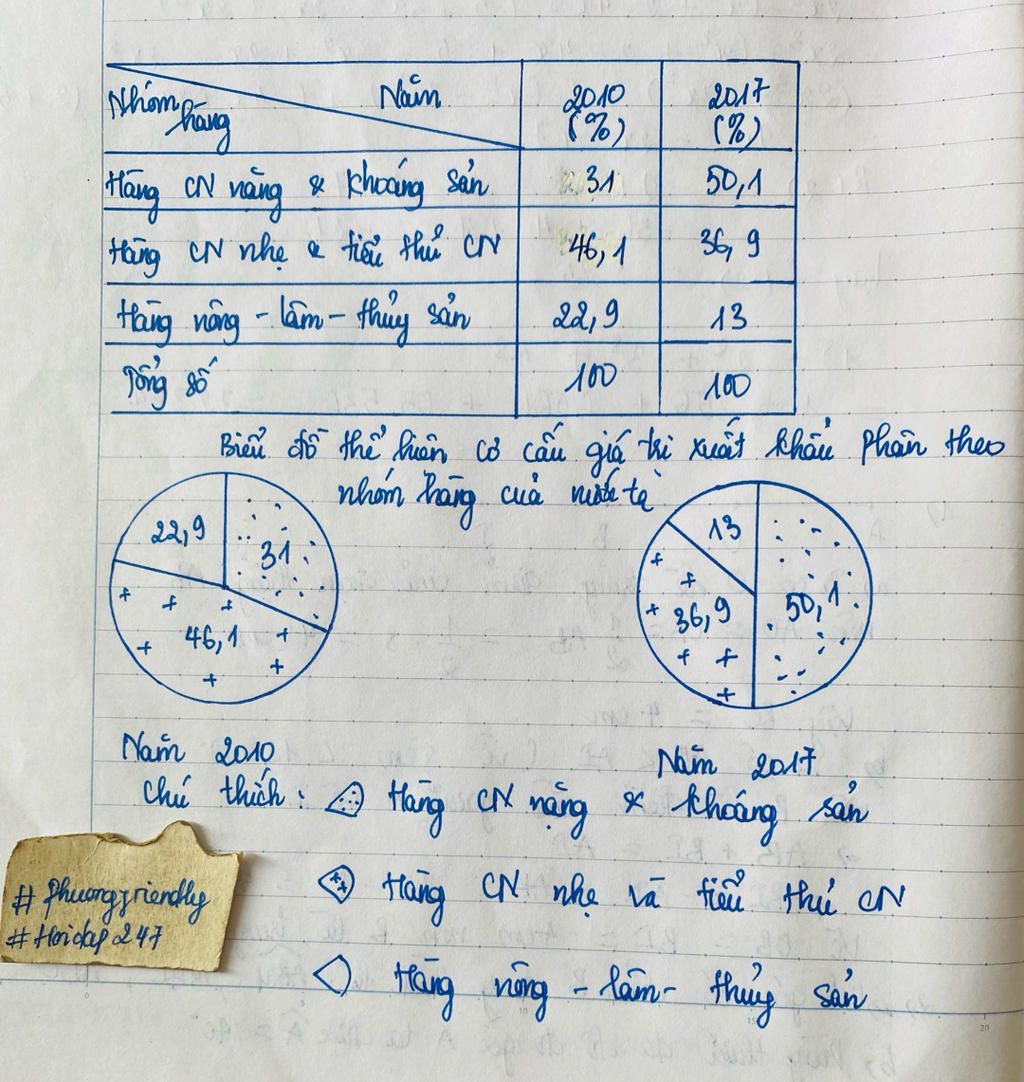 Năm
Nhóm hàng
2010 (%)
2017 (%)
Hàng CN nặng & khoáng sản 31 50,1
Hàng CN nhẹ & tiểu thủ CN 46,1 36,9
Hàng nông - lâm - thủy sản 22,9 13
Tổng số 100 100
Biểu đồ thể hiện cơ cấu giá trị xuất khẩu phân theo
nhóm hàng của nước ta
22,9 31 46,1
13 50,1 36,9
Năm 2010
Năm 2017
Chú thích: Hàng CN nặng & khoáng sản
Hàng CN nhẹ và tiểu thủ CN
Hàng nông - lâm - thủy sản
# phuongfriendly
# Hoidap 247